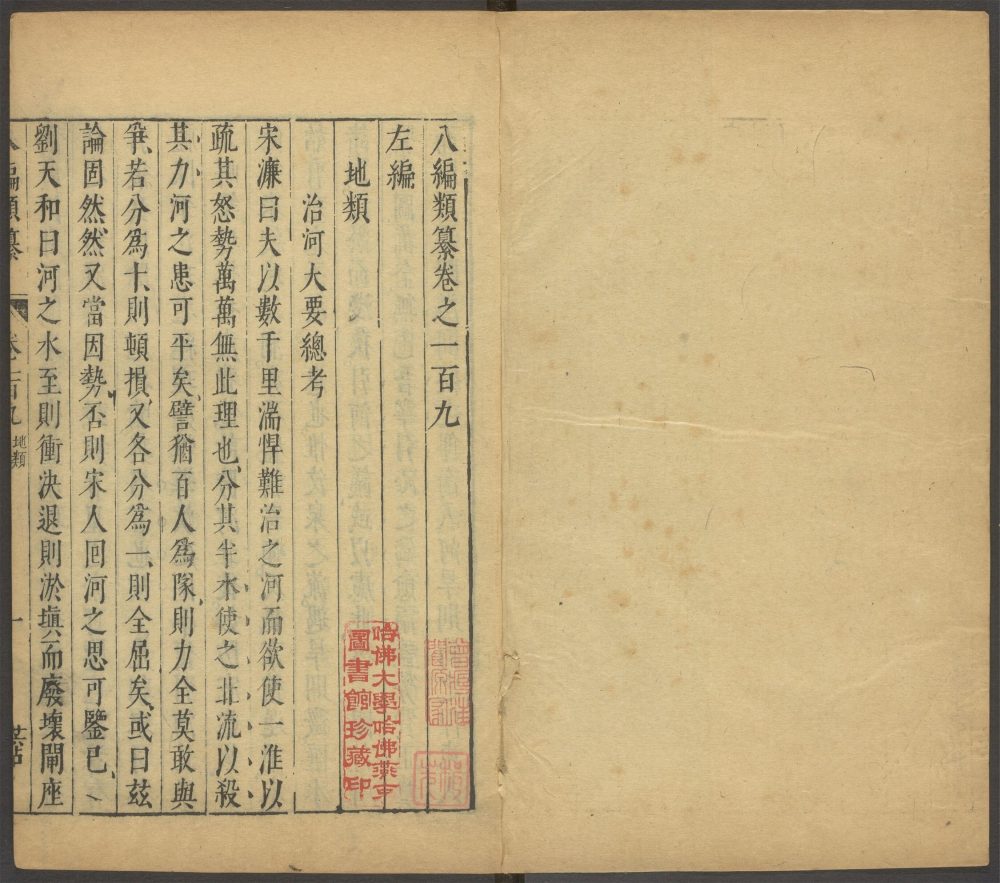 八編類纂卷之一百九
左編
地類
治河大要總考
宋濂曰夫以數千里湍悍難治之河而欲使一淮以
疏其怒勢萬萬無此理也分其半水使之北流以殺
其力河之患可平矣譬猶百人爲隊則力全莫敢與
爭若分爲十則頓損又各分爲一則全屈矣或曰玆
論固然然又當因勢否則宋人回河之思可鑒已
劉天和曰河之水至則衝决退則淤塡而廢壞閘座
八編類纂 卷一百九 地類 一
哈佛大學哈佛燕京
圖書館珍藏印